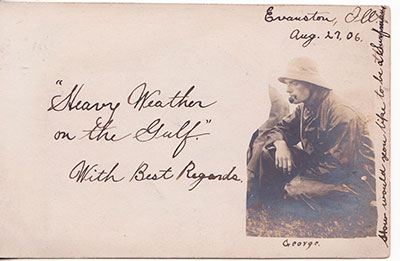 Evanston, Ill.
Aug. 27, 06.
"Heavy Weather
on the Gulf."
With Best Regards.
George.
How would you like to be a Surfman